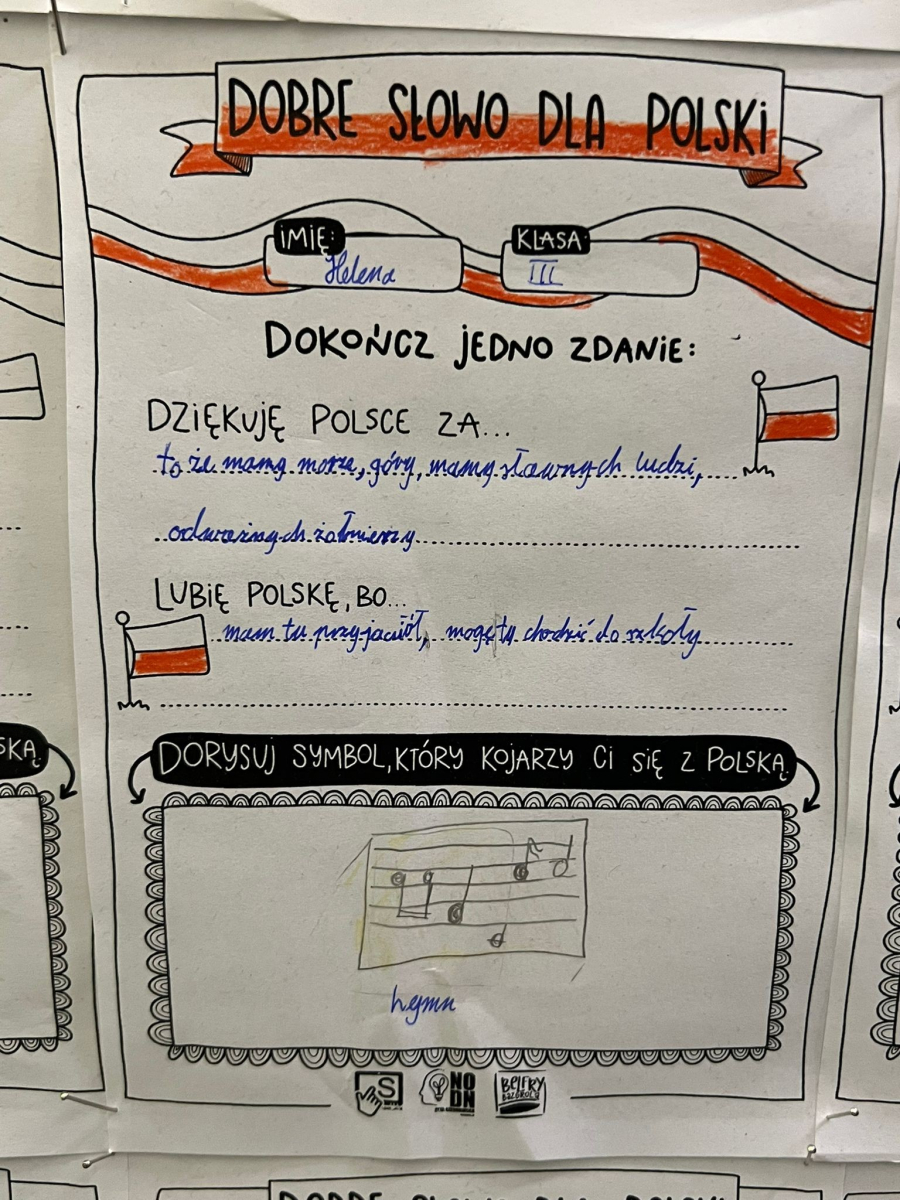 DOBRE SŁOWO DLA POLSKI
IMIĘ:
Helena
KLASA:
III
DOKOŃCZ JEDNO ZDANIE:
DZIĘKUJĘ POLSCE ZA...
to że mamy morze, góry, mamy sławnych ludzi,
odważnych żołnierzy
LUBIĘ POLSKĘ, BO...
mam tu przyjaciół, mogę tu chodzić do szkoły
SKĄ
DORYSUJ SYMBOL, KTÓRY KOJARZY CI SIĘ Z POLSKĄ
hymn
S
NO
DN
BELFRY
BAZGROLĄ
DOBRE SŁOWO DLA POLSKI